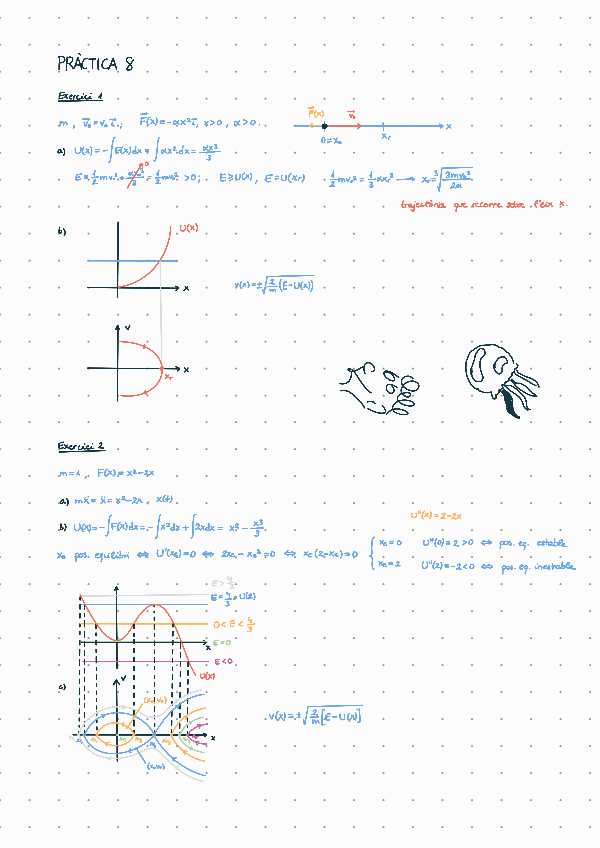 PRÀCTICA 8
Exercici 1
m, v⃗₀ = v₀ i⃗; F⃗(x) = -αx² i⃗, x>0, α>0.
F⃗(x) v⃗₀ x
0=x₀ xᵣ
a) U(x) = -∫F(x)dx = ∫αx²dx = αx³/3
E = 1/2 mv₀² + αx₀³/3 → 0 = 1/2 mv₀² > 0; E≥U(x), E=U(xᵣ) 1/2 mv₀² = 1/3 αxᵣ³ → xᵣ = ∛(3mv₀²/2α)
trajectòria que recorre sobre l'eix x.
b) U(x)
x
v(x) = ±√(2/m (E-U(x)))
v
x
xᵣ
Exercici 2
m=1, F(x) = x²-2x
a) mẍ = ẍ = x²-2x, x(t).
U''(x) = 2-2x
b) U(x) = -∫F(x)dx = -∫x²dx + ∫2xdx = x² - x³/3.
xₑ pos. equilibri ⇔ U'(xₑ)=0 ⇔ 2xₑ-xₑ²=0 ⇔ xₑ(2-xₑ)=0
xₑ=0 U''(0)=2>0 ⇔ pos. eq. estable
xₑ=2 U''(2)=-2<0 ⇔ pos. eq. inestable
E > 4/3
E = 4/3 = U(2)
0 < E < 4/3
x E=0
E<0
U(x)
c) v
x
v(x) = ±√(2/m [E-U(x)])